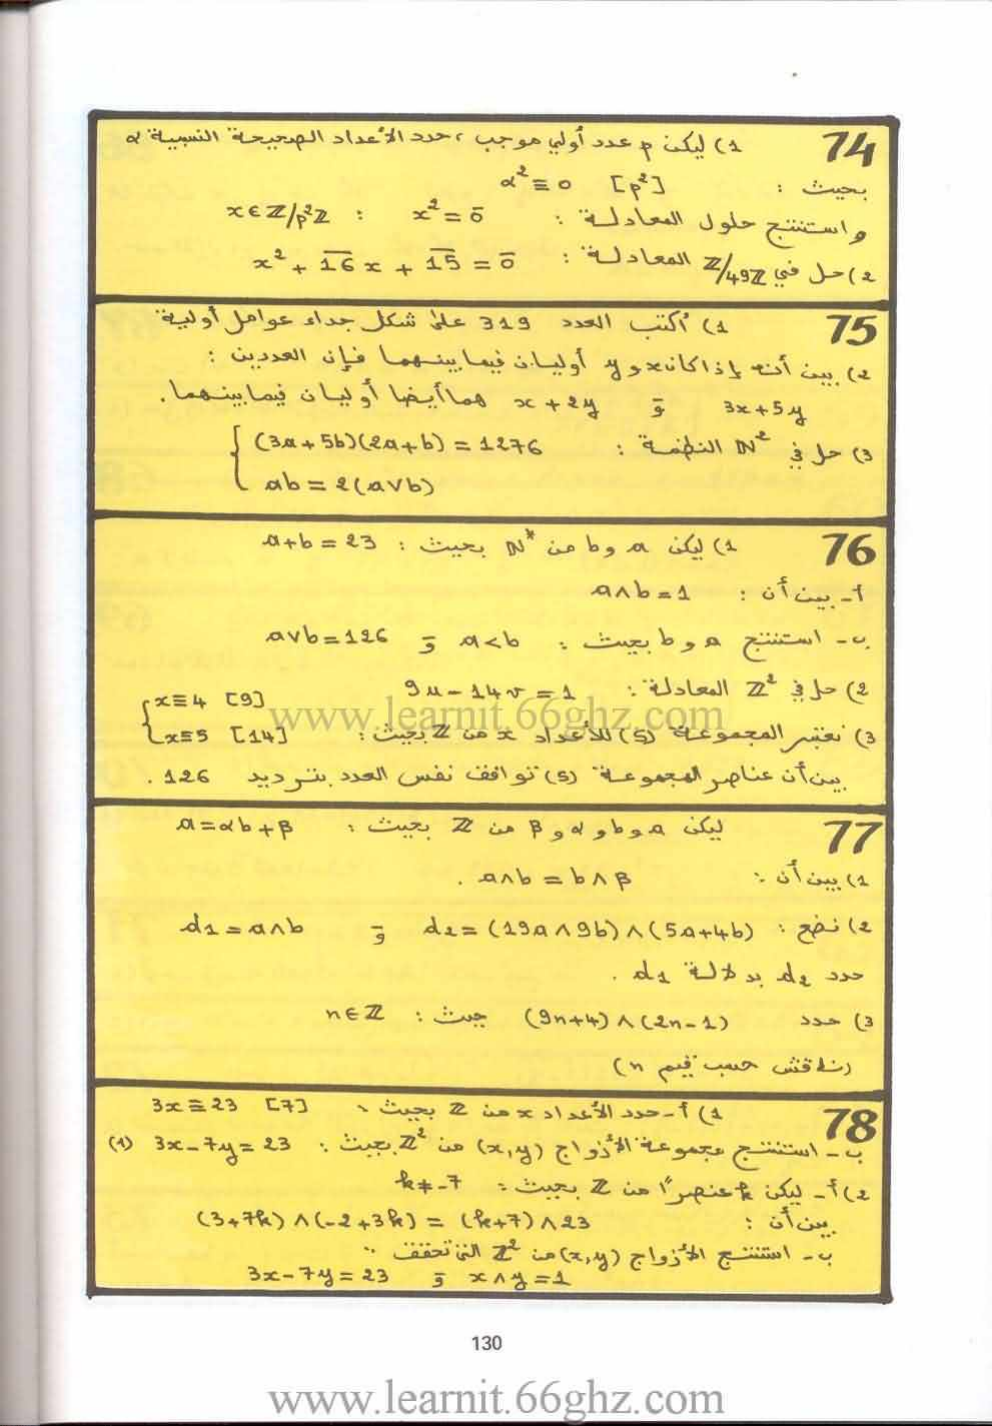 74
1) ليكن p عدد أولي موجب ، حدد الأعداد الصحيحة النسبية α
بحيث : α² ≡ 0 [p²]
و استنتج حلول المعادلة : x² = 0̄ : x∈ℤ/p²ℤ
2) حل في ℤ/49ℤ المعادلة : x² + 1̅6̅x + 1̅5̅ = 0̄
75
1) أكتب العدد 319 على شكل جداء عوامل أولية
2) بين أنه إذا كان x و y أوليان فيما بينهما فإن العددين :
3x+5y و x+2y هما أيضا أوليان فيما بينهما .
3) حل في ℕ² النظمة : { (3a+5b)(2a+b) = 1276
ab = 2(a∨b)
76
1) ليكن a و b من ℕ* بحيث : a+b = 23
أ - بين أن : a∧b = 1
ب - استنتج a و b بحيث : a<b و a∨b = 126
2) حل في ℤ² المعادلة : 9u - 14v = 1
3) نعتبر المجموعة (S) للأعداد x من ℤ بحيث : { x≡4 [9]
x≡5 [14]
بين أن عناصر المجموعة (S) توافق نفس العدد بترديد 126 .
www.learnit.66ghz.com
77
ليكن a و b و α و β من ℤ بحيث : a = αb + β
1) بين أن : a∧b = b∧β .
2) نضع : d₂ = (19a∧9b)∧(5a+4b) و d₁ = a∧b
حدد d₂ بدلالة d₁ .
3) حدد (9n+4)∧(2n-1) حيث : n∈ℤ
(ناقش حسب قيم n)
78
1) أ - حدد الأعداد x من ℤ بحيث : 3x ≡ 23 [7]
ب - استنتج مجموعة الأزواج (x,y) من ℤ² بحيث : 3x - 7y = 23 (1)
2) أ - ليكن k عنصرًا من ℤ بحيث : k ≠ -7
بين أن : (3+7k)∧(-2+3k) = (k+7)∧23
ب - استنتج الأزواج (x,y) من ℤ² التي تحقق :
x∧y = 1 و 3x - 7y = 23
130
www.learnit.66ghz.com